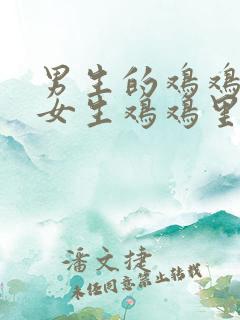 男生的鸡鸡
女生鸡鸡里
潘文捷
未经同意禁止转载